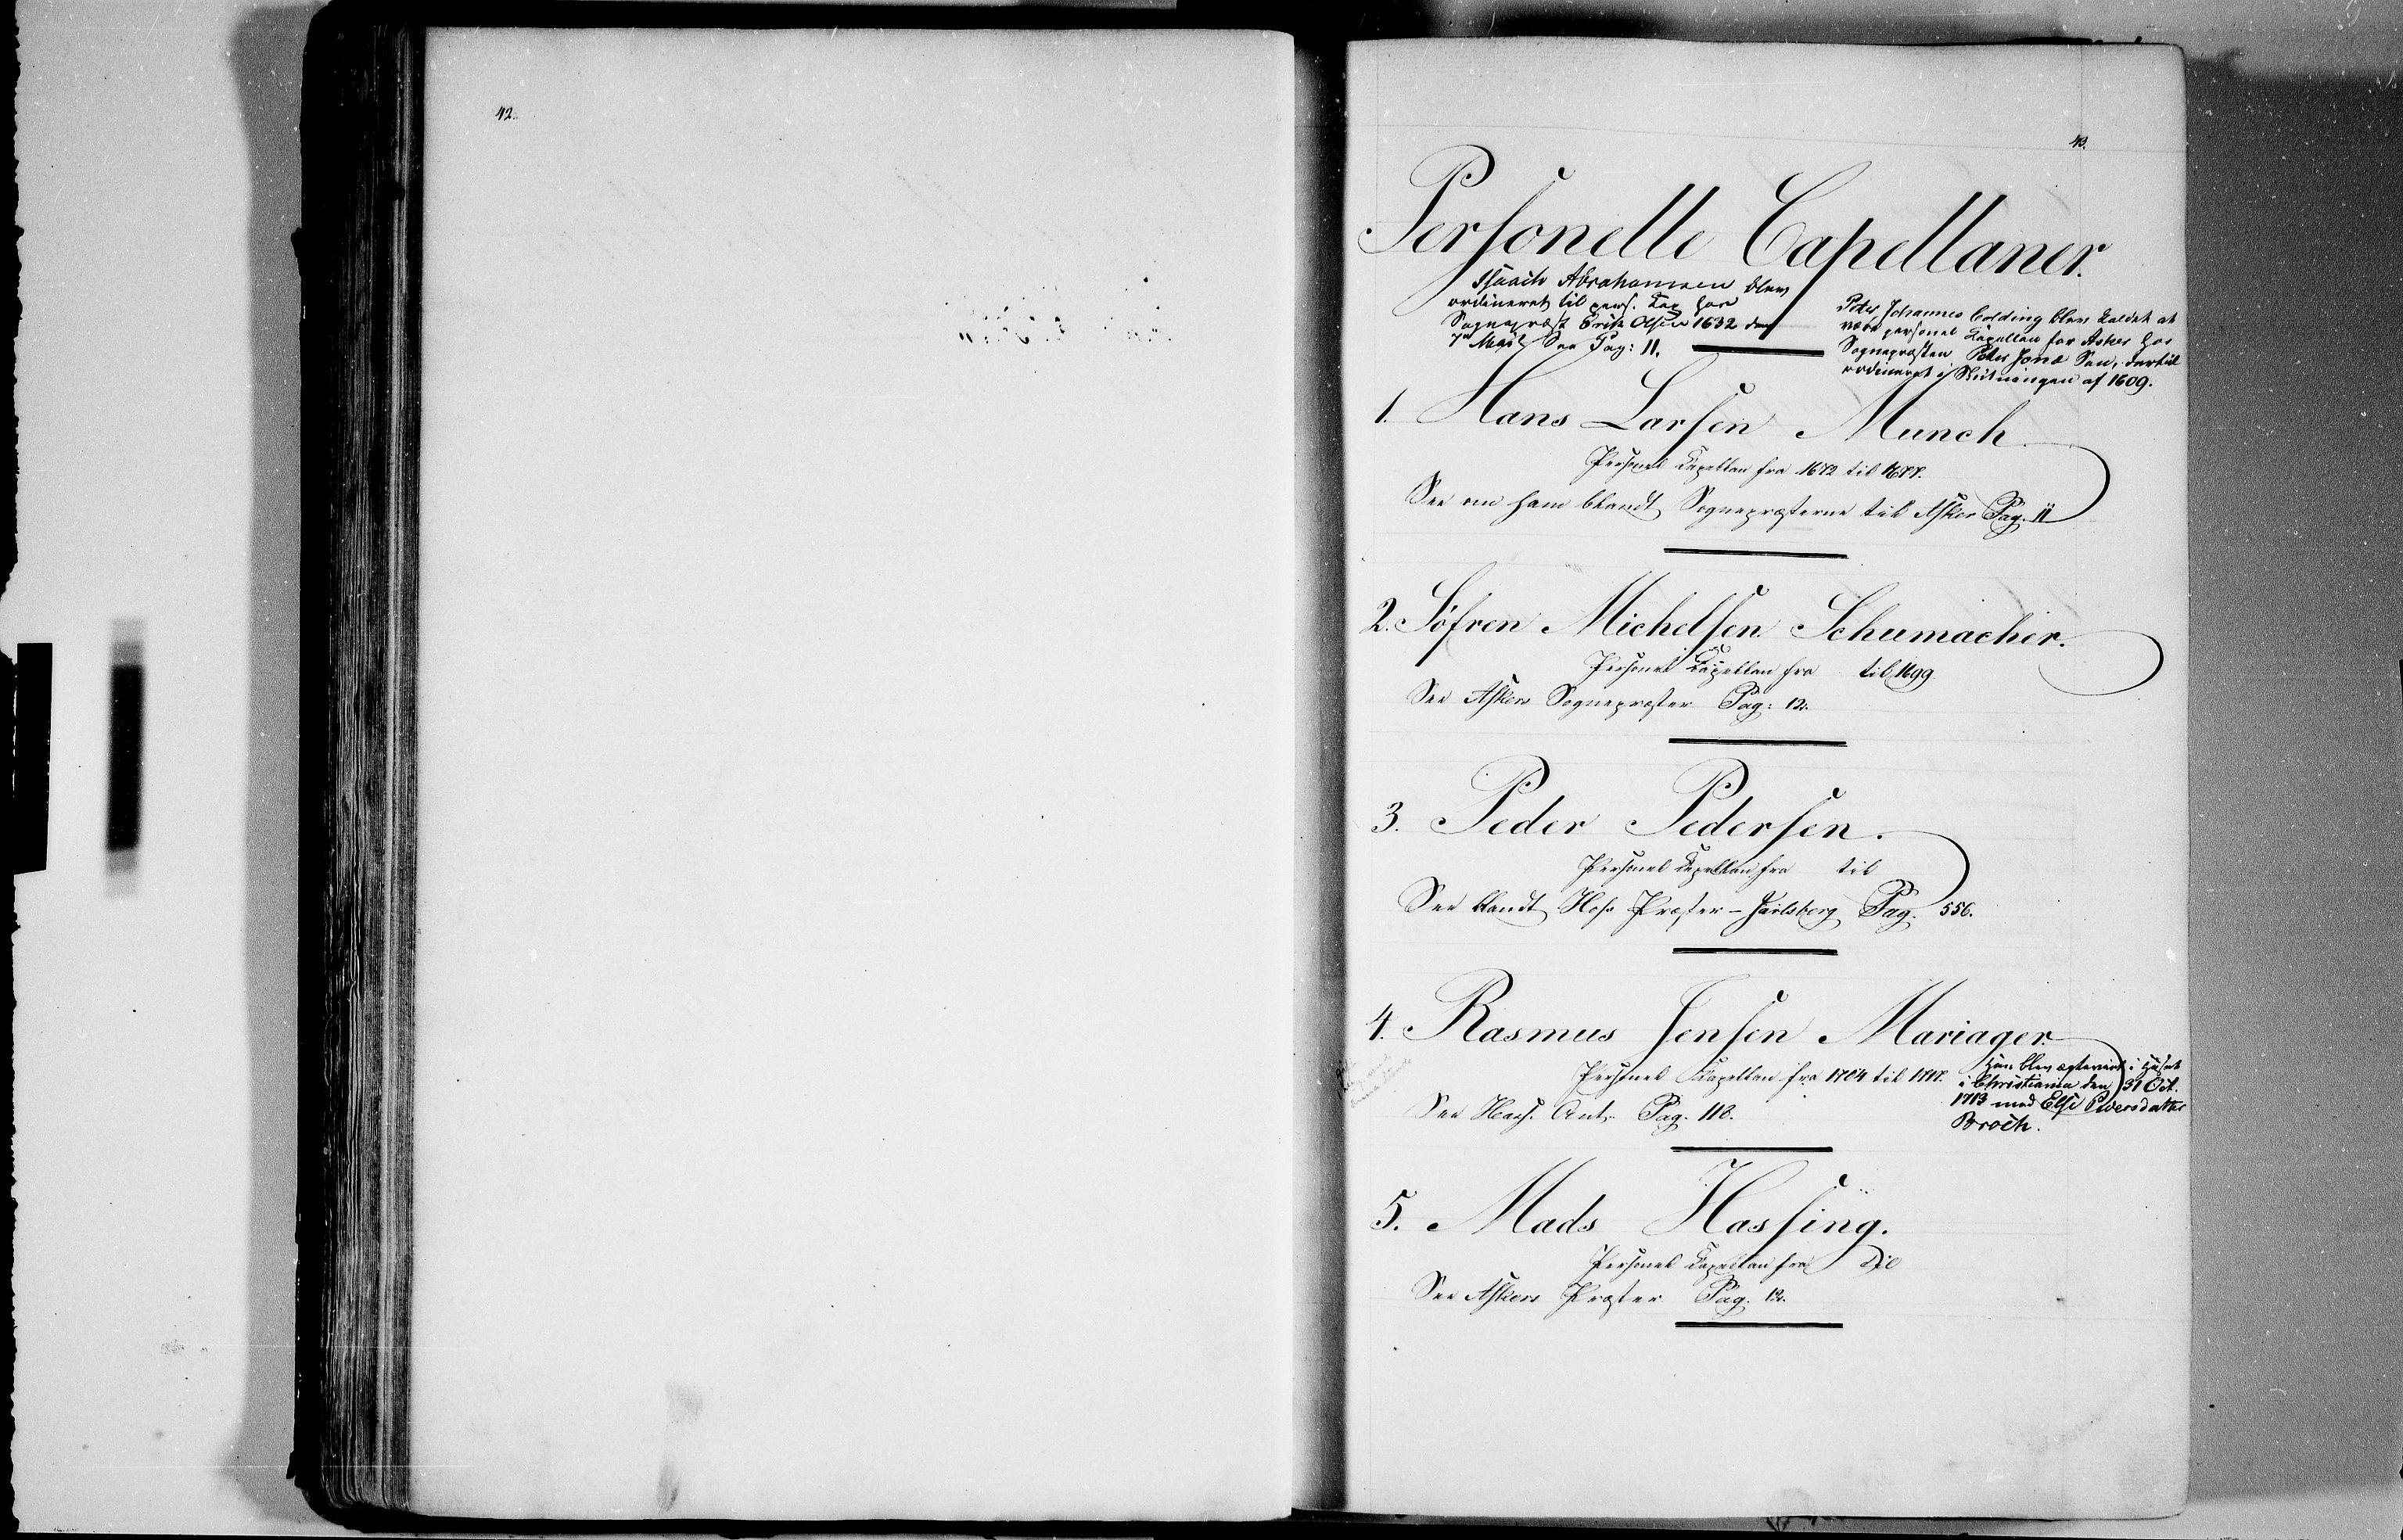 42.
43.
Personelle Capellaner.
Isaach Abrahamsen blev
ordineret til pers. Cap hos
Sognepræst Erik Olsen 1632 den
7de Maji See Pag: 11.
Peder Johannes Colding blev kaldet at
være personel Capellan for Asker hos
Sognepræsten Peder Jonæ Søn, dertil
ordineret i Slutningen af 1609.
1. Hans Larsen Munch
Personel Capellan fra 1672 til 1677.
See om ham blandt Sognepræsterne til Asker Pag. 11
2. Søfren Michelsen Schumacher.
Personel Capellan fra til 1699
See Askers Sognepræster Pag: 12.
3. Peder Pedersen.
Personel Capellan fra til
See blandt Hofs Præster - Jarlsberg Pag. 556.
4. Rasmus Jensen Mariager
Personel Capellan fra 1704 til 1717.
See Pag. 118.
Han blev egteviet i Huset
i Christiania den 31 Oct.
1713 med Else Elversdatter
Broch.
5. Mads Hassing.
Personel Capellan fra til
See Askers Præster Pag. 12.